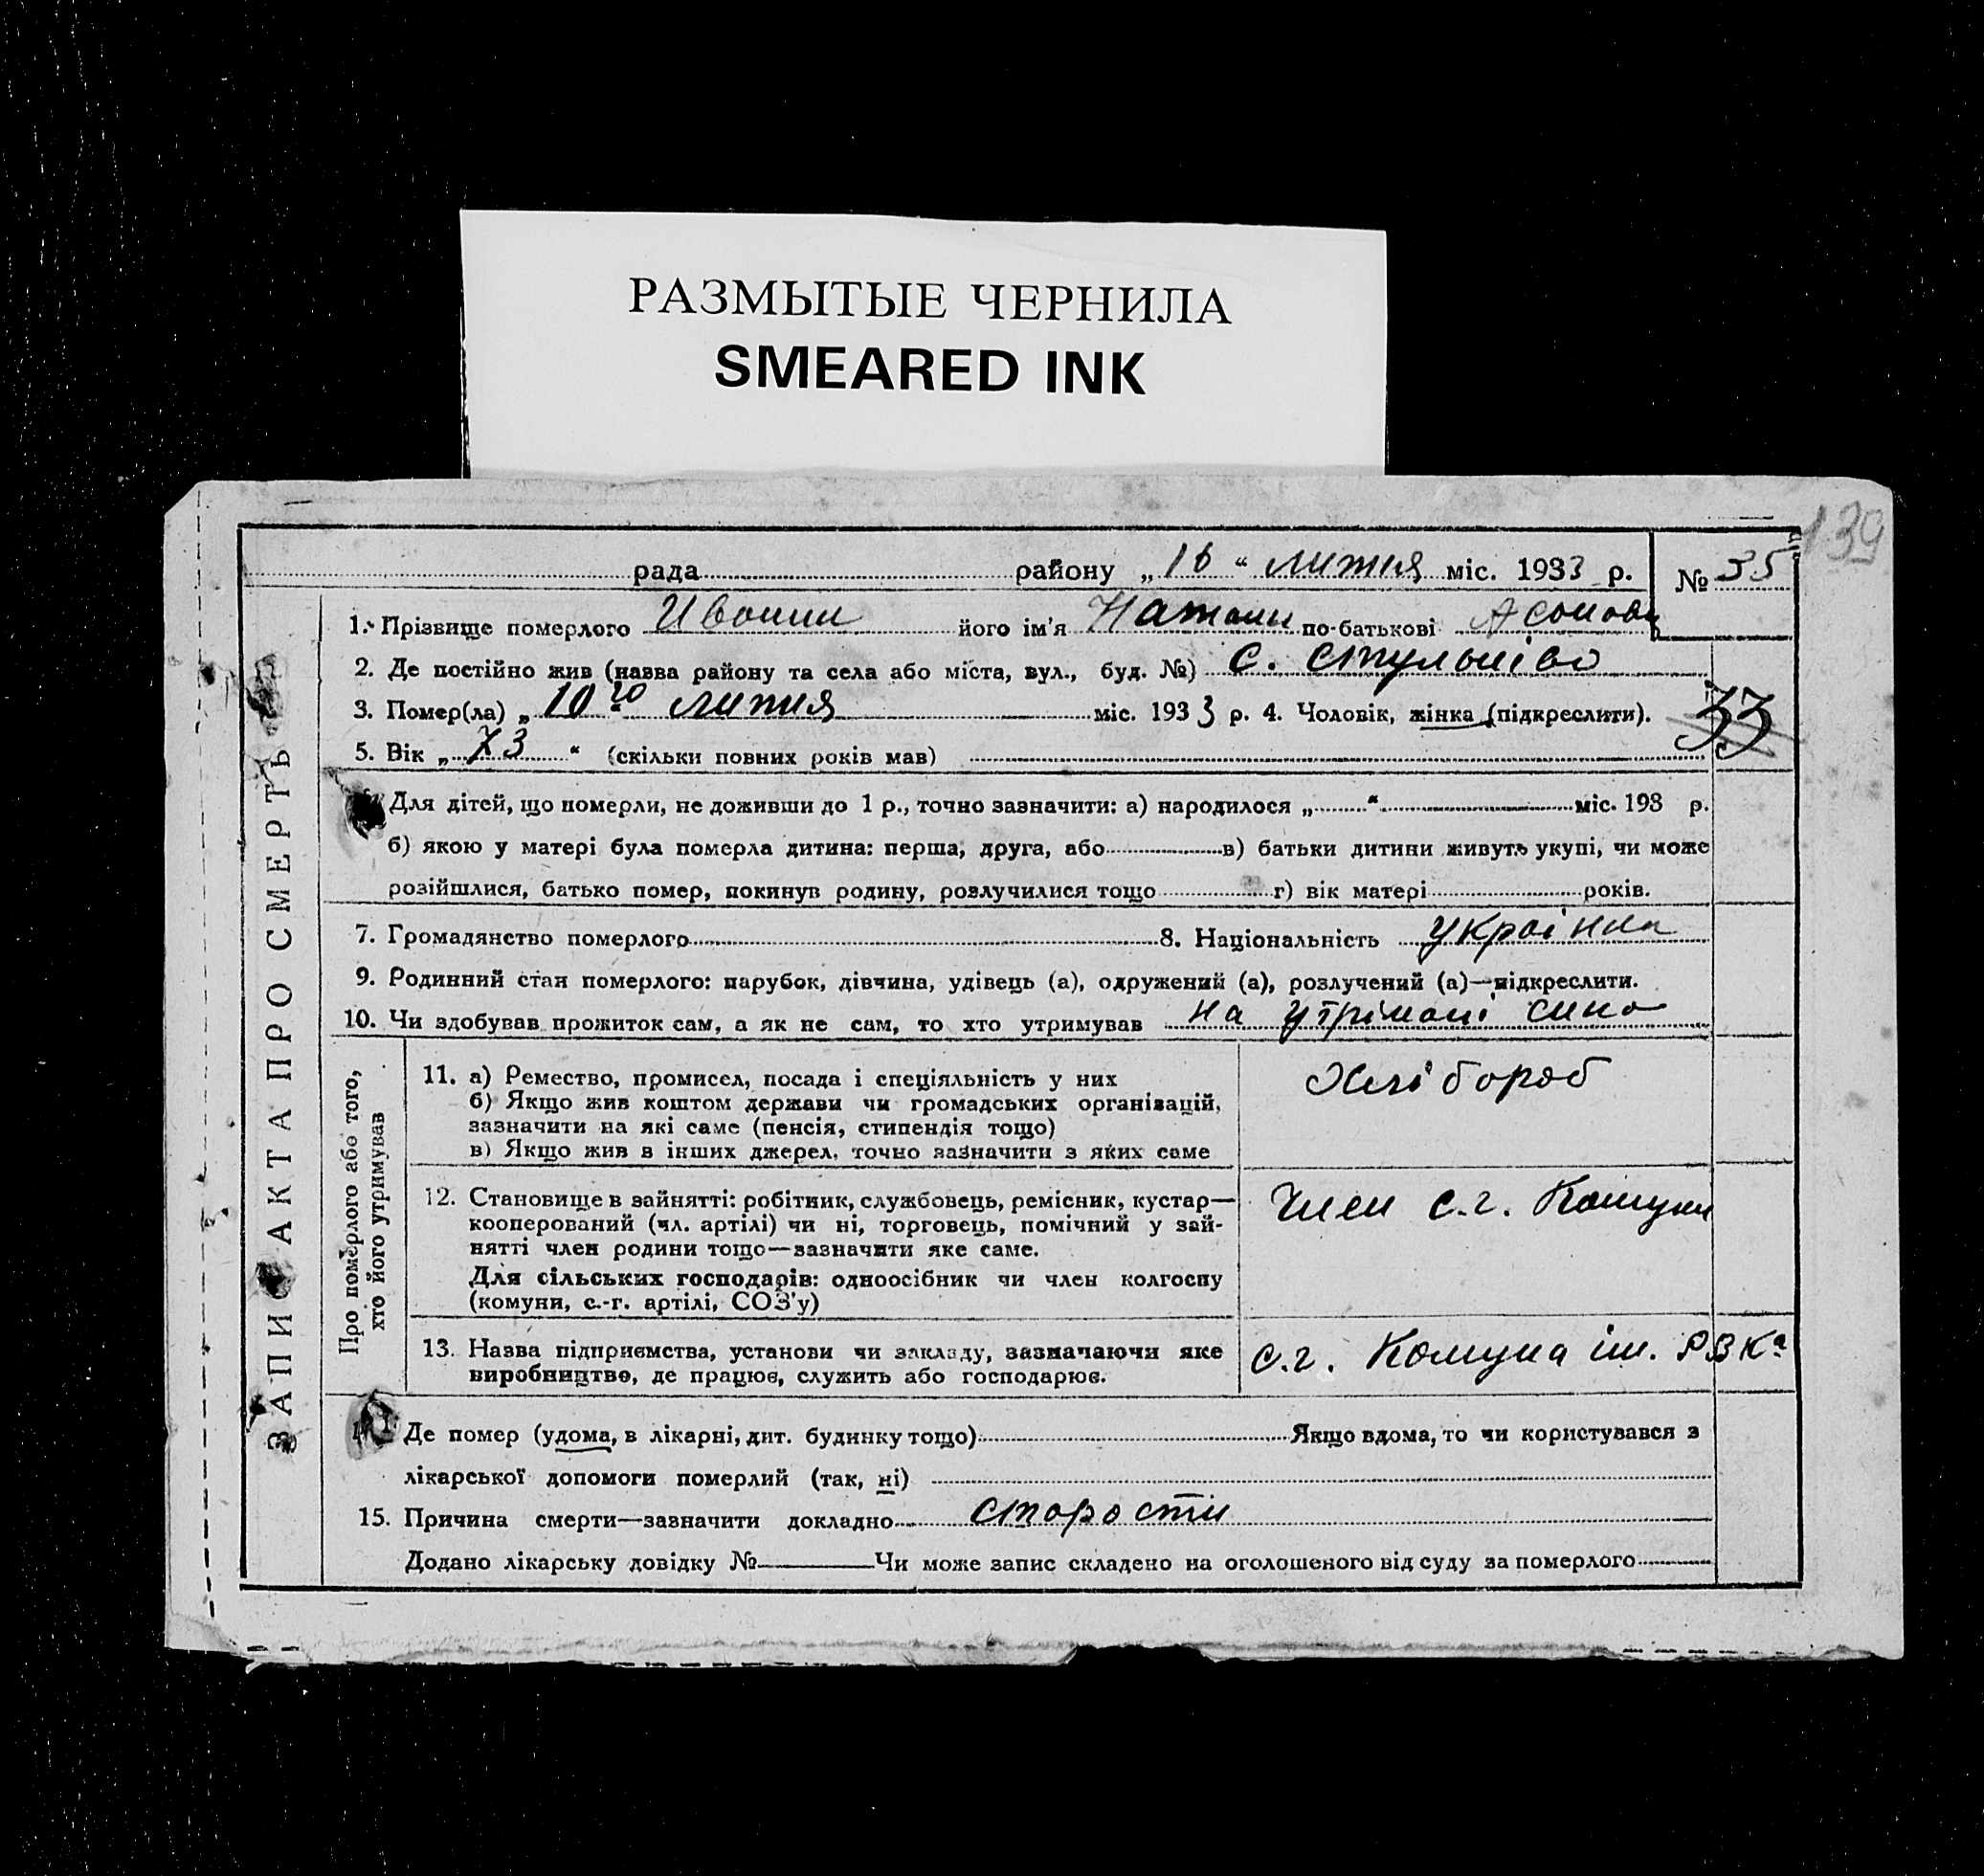 РАЗМЫТЫЕ ЧЕРНИЛА
SMEARED INK
139
рада района району „16“ лютия міс. 1933 р. № 35
1. Прізвище померлого його ім'я Натали по-батькові
2. Де постійно жив (назва району та села або міста, вул., буд. №) с.
3. Помер(ла) „10го лютия міс. 1933 р. 4. Чоловік, жінка (підкреслити).
33
5. Вік „73“ (скільки повних років мав)
Для дітей, що померли, не доживши до 1 р., точно зазначити: а) народилося „ “ міс. 193 р.
б) якою у матері була померла дитина: перша, друга, або в) батьки дитини живуть укупі, чи може
розійшлися, батько помер, покинув родину, розлучилися тощо г) вік матері років.
7. Громадянство померлого 8. Національність українка
9. Родинний стан померлого: парубок, дівчина, удівець (а), одружений (а), розлучений (а)—підкреслити.
10. Чи здобував прожиток сам, а як не сам, то хто утримував на утрімані сина
ЗАПИС АКТА ПРО СМЕРТЬ
Про померлого або того,
хто його утримував
11. а) Ремество, промисел, посада і спеціяльність у них
б) Якщо жив коштом держави чи громадських організацій,
зазначити на які саме (пенсія, стипендія тощо)
в) Якщо жив в інших джерел, точно зазначити з яких саме
Хлібороб
12. Становище в зайнятті: робітник, службовець, ремісник, кустар—
кооперований (чл. артілі) чи ні, торговець, помічний у зай-
нятті член родини тощо—зазначити яке саме.
Для сільських господарів: одноосібник чи член колгоспу
(комуни, с.-г. артілі, СОЗ'у)
Член с.г. Комуни
13. Назва підприємства, установи чи закладу, зазначаючи яке
виробництво, де працює, служить або господарює.
с.г. Комуна ім. РВК
Де помер (удома, в лікарні, дит. будинку тощо) Якщо вдома, то чи користувався з
лікарської допомоги померлий (так, ні)
15. Причина смерти—зазначити докладно старости
Додано лікарську довідку № Чи може запис складено на оголошеного від суду за померлого